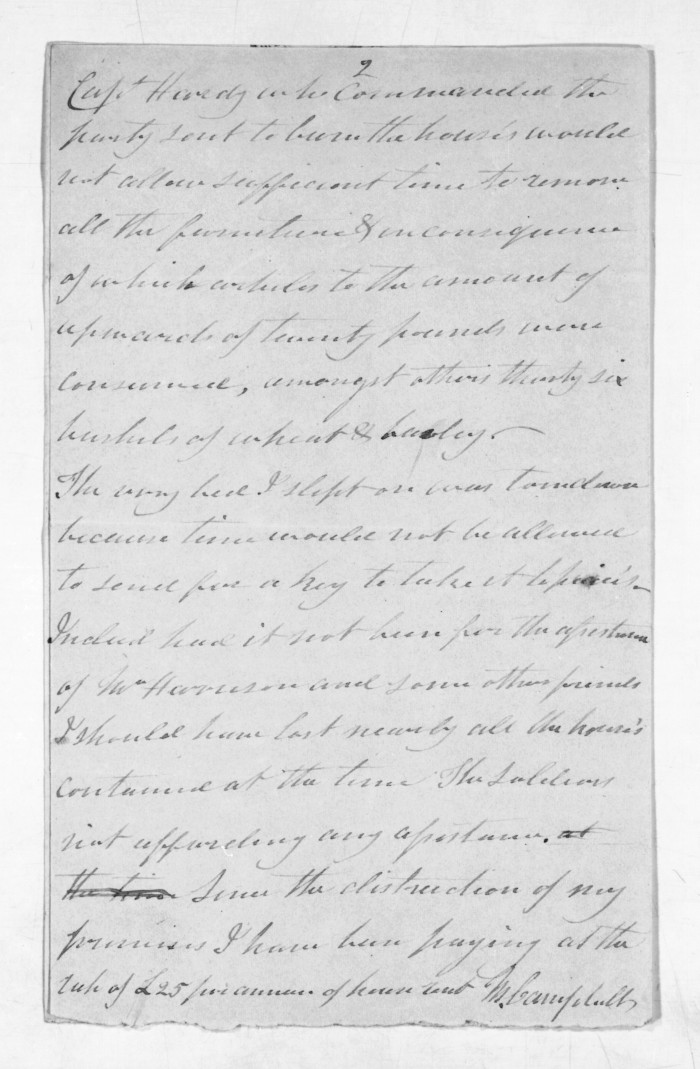 2
Capt Hardy who Commanded the
party sent to burn the houses would
not allow sufficient time to remove
all the furniture & in consequence
of which articles to the amount of
upwards of twenty pounds were
consumed, amongst others thirty six
bushels of wheat & barley. —
The very bed I slept on was torn down
because time would not be allowed
to send for a key to take it to pieces —
Indeed had it not been for the assistance
of Mr Harrison and some other friends
I should have lost nearly all the houses
contained at the time The Soldiers
not affording any assistance. at
the time Since the distruction of my
premises I have been paying at the
rate of £25 per annum of house rent M. Campbell